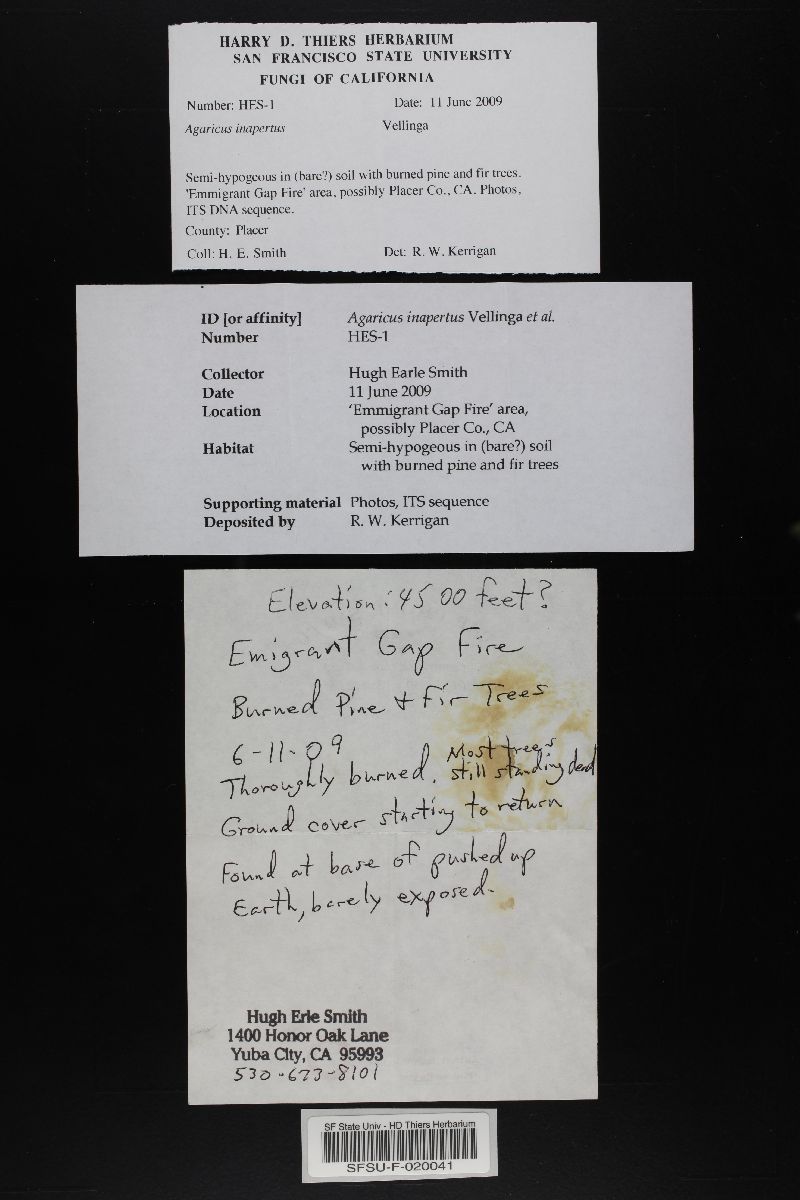 HARRY D. THIERS HERBARIUM
SAN FRANCISCO STATE UNIVERSITY
FUNGI OF CALIFORNIA
Number: HES-1 Date: 11 June 2009
Agaricus inapertus Vellinga
Semi-hypogeous in (bare?) soil with burned pine and fir trees.
'Emmigrant Gap Fire' area, possibly Placer Co., CA. Photos,
ITS DNA sequence.
County: Placer
Coll: H. E. Smith Det: R. W. Kerrigan
ID [or affinity] Agaricus inapertus Vellinga et al.
Number HES-1
Collector Hugh Earle Smith
Date 11 June 2009
Location 'Emmigrant Gap Fire' area,
possibly Placer Co., CA
Habitat Semi-hypogeous in (bare?) soil
with burned pine and fir trees
Supporting material Photos, ITS sequence
Deposited by R. W. Kerrigan
Elevation: 4500 feet?
Emigrant Gap Fire
Burned Pine + Fir Trees
6-11-09
Thoroughly burned. Most trees
still standing dead
Ground cover starting to return
Found at base of pushed up
Earth, barely exposed.
Hugh Erle Smith
1400 Honor Oak Lane
Yuba City, CA 95993
530-673-8101
SF State Univ - HD Thiers Herbarium
SFSU-F-020041